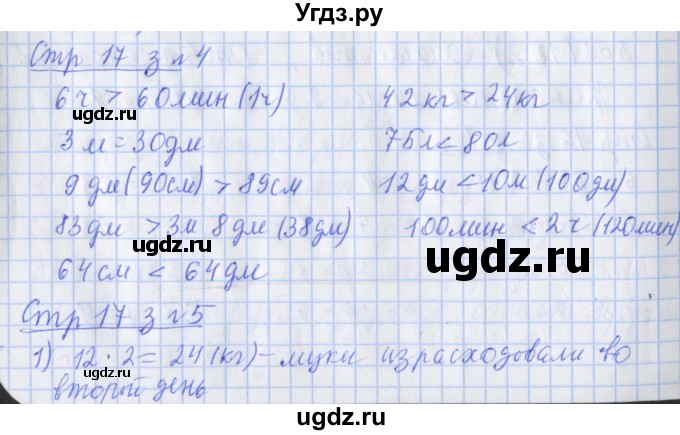 Угдз.ру
Стр 17 з №4
6 ч > 60 мин (1ч)
42 кг > 24 кг
3 м = 30 дм
75 л < 80 л
9 дм (90 см) > 89 см
12 дм < 10 м (100 дм)
83 дм > 3 м 8 дм (38 дм)
100 мин < 2 ч (120 мин)
64 см < 64 дм
Стр 17 з №5
1) 12 · 2 = 24 (кг) - муки израсходовали во
второй день
ugdz.ru
ugdz.ru
ugdz.ru
ugdz.ru
ugdz.ru
ugdz.ru
ugdz.ru